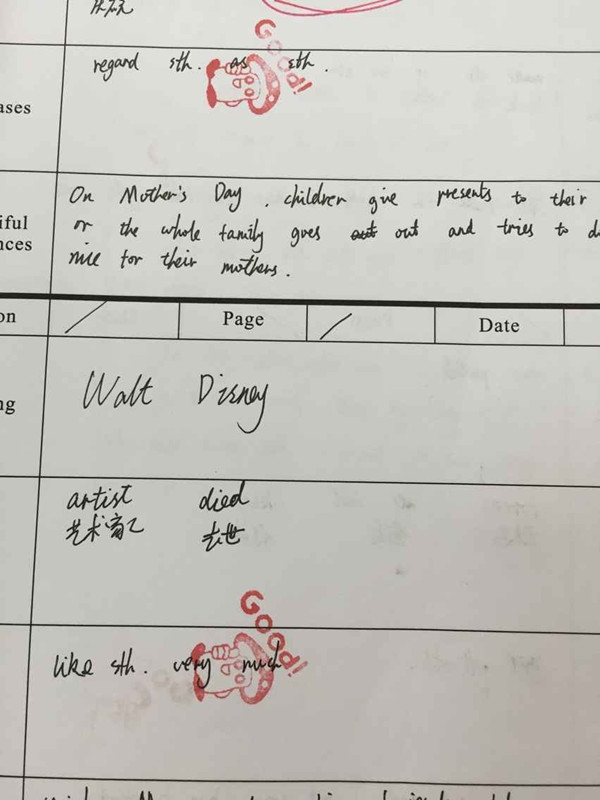 Good!
regard sth. as sth.
ases
On Mother's Day, children give presents to their
iful
or the whole family goes out and tries to d
nces
nice for their mothers.
on / Page / Date
ng
Walt Disney
artist died
艺术家 去世
Good!
like sth. very much